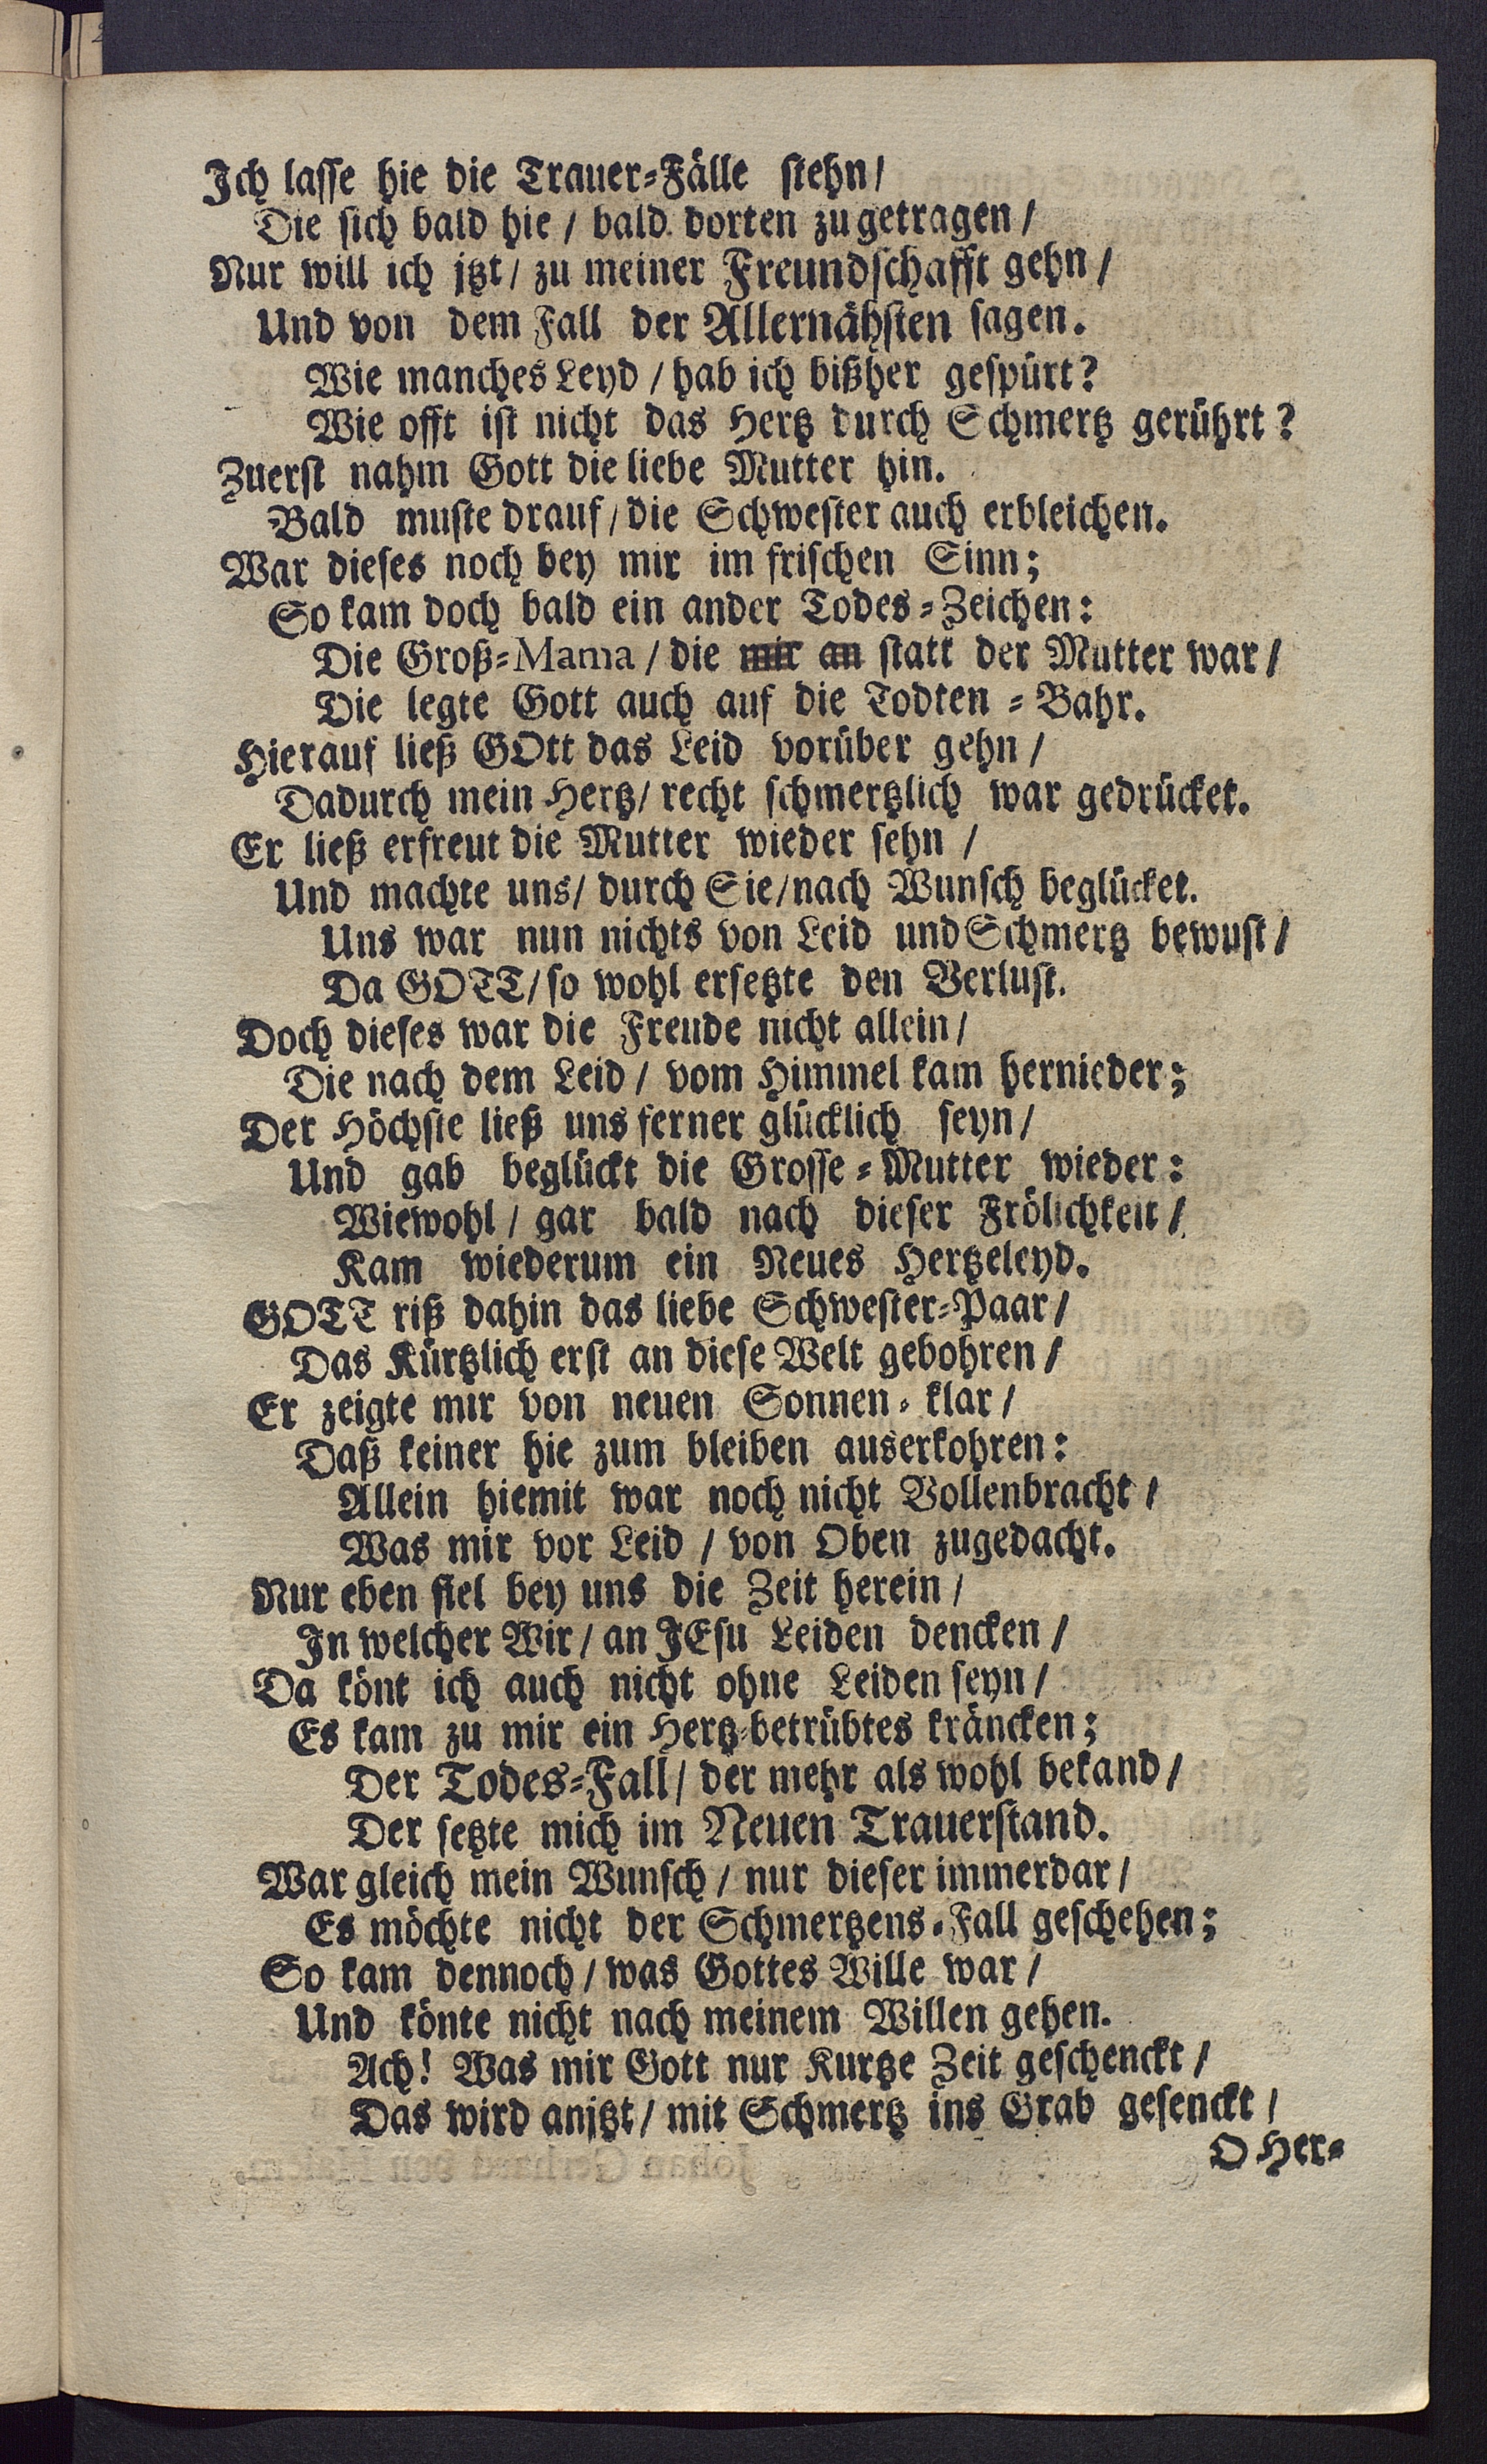 Ich lasse hie die Trauer-Fälle stehn/
Die sich bald hie / bald dorten zugetragen /
Nur will ich jtzt / zu meiner Freundschafft gehn /
Und von dem Fall der Allernähsten sagen.
Wie manches Leyd / hab ich bißher gespürt?
Wie offt ist nicht das Hertz durch Schmertz gerührt?
Zuerst nahm Gott die liebe Mutter hin.
Bald muste drauf / die Schwester auch erbleichen.
War dieses noch bey mir im frischen Sinn;
So kam doch bald ein ander Todes-Zeichen:
Die Groß-Mama / die mir an statt der Mutter war /
Die legte Gott auch auf die Todten-Bahr.
Hierauf ließ GOtt das Leid vorüber gehn /
Dadurch mein Hertz / recht schmertzlich war gedrücket.
Er ließ erfreut die Mutter wieder sehn /
Und machte uns / durch Sie / nach Wunsch beglücket.
Uns war nun nichts von Leid und Schmertz bewust /
Da GOTT / so wohl ersetzte den Verlust.
Doch dieses war die Freude nicht allein /
Die nach dem Leid / vom Himmel kam hernieder;
Der Höchste ließ uns ferner glücklich seyn /
Und gab beglückt die Grosse-Mutter wieder:
Wiewohl / gar bald nach dieser Frölichkeit /
Kam wiederum ein Neues Hertzeleyd.
GOTT riß dahin das liebe Schwester-Paar /
Das Kürtzlich erst an diese Welt gebohren /
Er zeigte mir von neuen Sonnen-klar /
Daß keiner hie zum bleiben auserkohren:
Allein hiemit war noch nicht Vollenbracht /
Was mir vor Leid / von Oben zugedacht.
Nur eben fiel bey uns die Zeit herein /
In welcher Wir / an JEsu Leiden dencken /
Da könt ich auch nicht ohne Leiden seyn /
Es kam zu mir ein Hertz-betrübtes kräncken;
Der Todes-Fall / der mehr als wohl bekand /
Der setzte mich im Neuen Trauerstand.
War gleich mein Wunsch / nur dieser immerdar /
Es möchte nicht der Schmertzens-Fall geschehen;
So kam dennoch / was Gottes Wille war /
Und könte nicht nach meinem Willen gehen.
Ach! Was mir Gott nur Kurtze Zeit geschenckt /
Das wird anjtzt / mit Schmertz ins Grab gesenckt /
O Her-